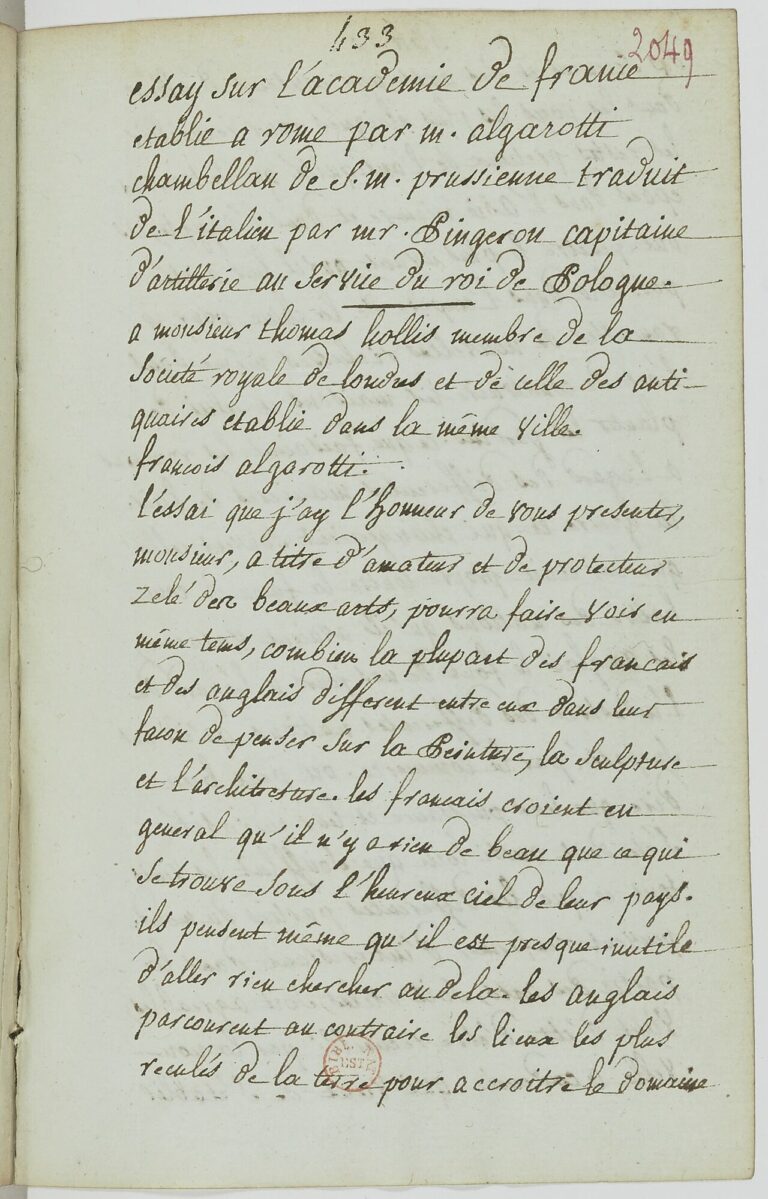 433
2049
essay sur l'académie de france
etablie a rome par m. algarotti
chambellan de S. m. prussienne traduit
de l'italien par mr. Pingeron capitaine
d'artillerie au service du roi de Pologne.
a monsieur thomas hollis membre de la
Societé royale de londres et de celle des anti-
quaires etablie dans la même ville.
francois algarotti.
l'essai que j'ay l'honneur de vous presenter,
monsieur, a titre d'amateur et de protecteur
zelé des beaux arts, pourra faire voir en
même tems, combien la plupart des francais
et des anglais different entre eux dans leur
facon de penser sur la Peinture, la Sculpture
et l'architecture. les francais croient en
general qu'il n'y a rien de beau que ce qui
se trouve sous l'heureux ciel de leur pays.
ils pensent même qu'il est presque inutile
d'aller rien chercher au dela. les anglais
parcourent au contraire les lieux les plus
reculés de la terre pour accroitre le domaine